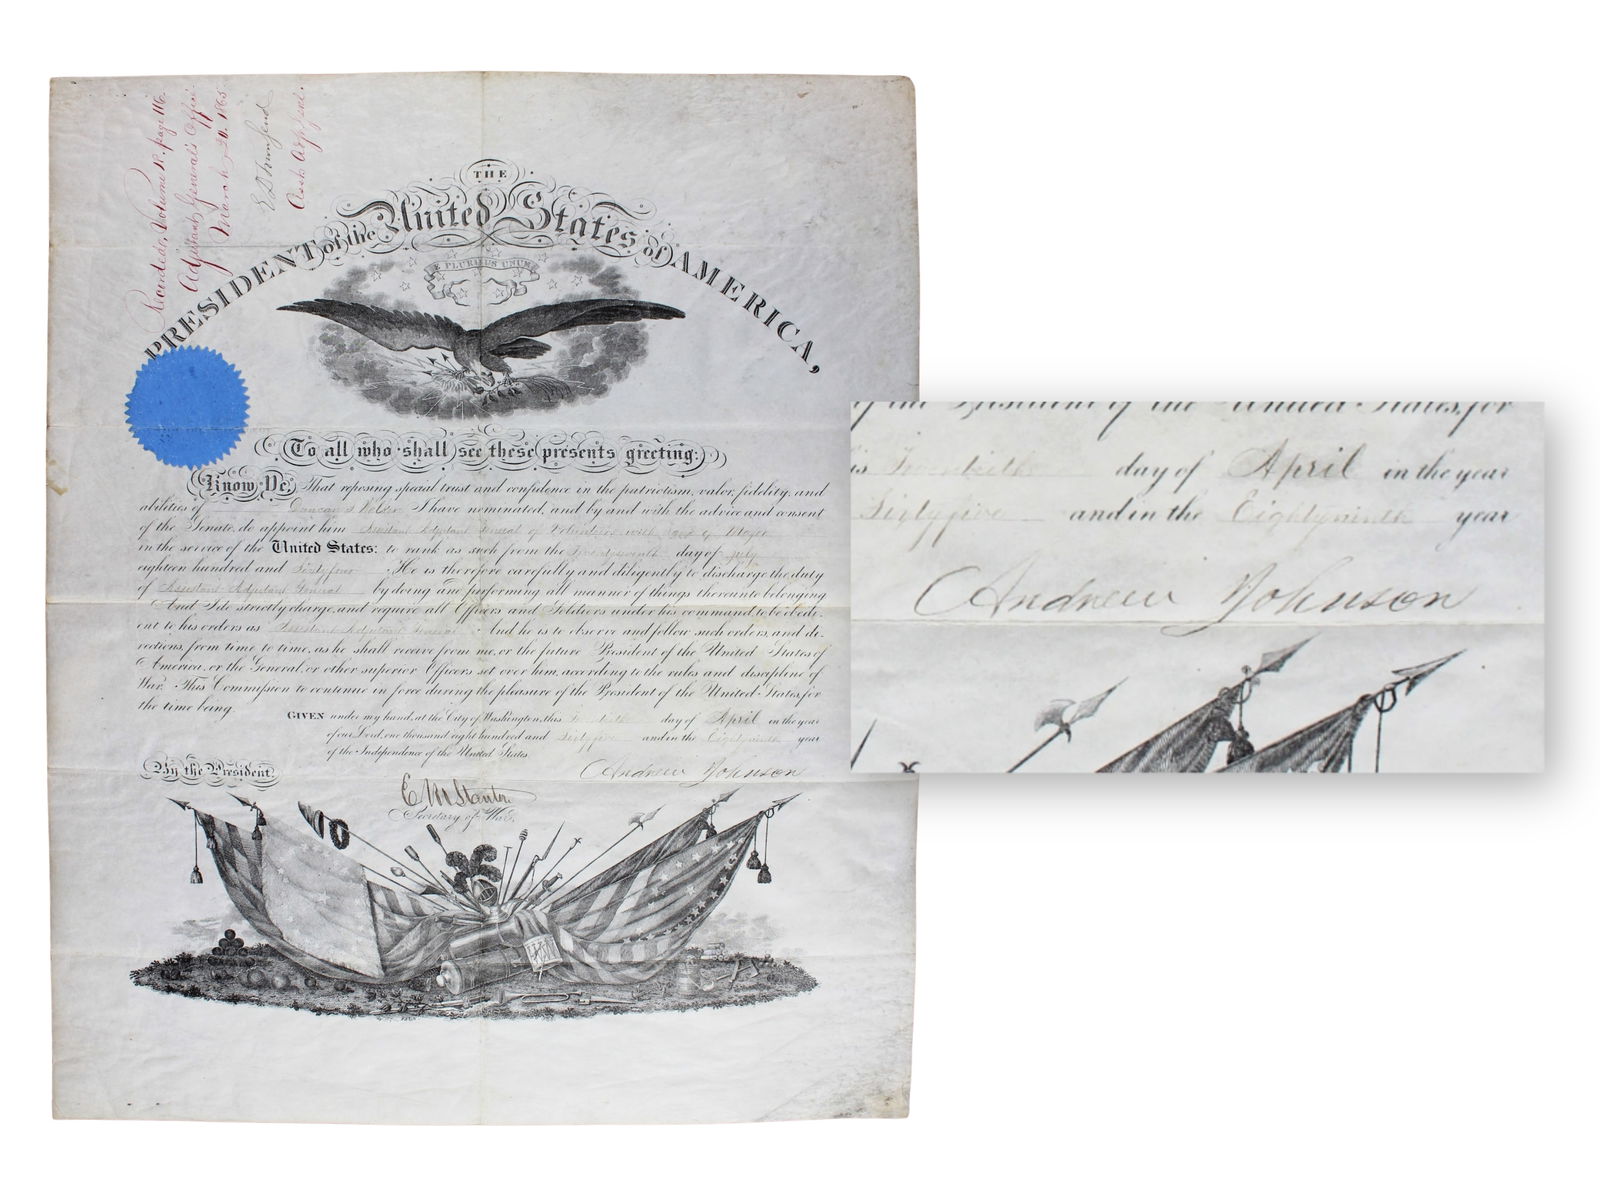 Recorded, Volume R. page 116.
Adjutant General's Office
March 20. 1865.
E D Townsend
Asst. Adjt. Genl.
THE
PRESIDENT of the United States of AMERICA,
E PLURIBUS UNUM
To all who shall see these presents greeting:
Know Ye, That reposing special trust and confidence in the patriotism, valor, fidelity, and
abilities of Duncan S Walker I have nominated, and by and with the advice and consent
of the Senate, do appoint him Assistant Adjutant General of Volunteers with rank of Major
in the service of the United States: to rank as such from the day of July
eighteen hundred and Sixty four. He is therefore carefully and diligently to discharge the duty
of Assistant Adjutant General by doing and performing all manner of things thereunto belonging.
And I do strictly charge, and require all Officers and Soldiers under his command, to be obedi-
ent to his orders as Assistant Adjutant General And he is to observe and follow such orders, and di-
rections, from time to time, as he shall receive from me, or the future President of the United States of
America, or the General, or other superior Officers set over him, according to the rules and discipline of
War. This Commission to continue in force during the pleasure of the President of the United States, for
the time being.
GIVEN under my hand, at the City of Washington, this Twentieth day of April in the year
of our Lord, one thousand eight hundred and Sixty five and in the Eighty ninth year
of the Independence of the United States.
By the President
Andrew Johnson
E M Stanton
Secretary of War.
of the President of the United States, for
is Twentieth day of April in the year
Sixty five and in the Eighty ninth year
Andrew Johnson